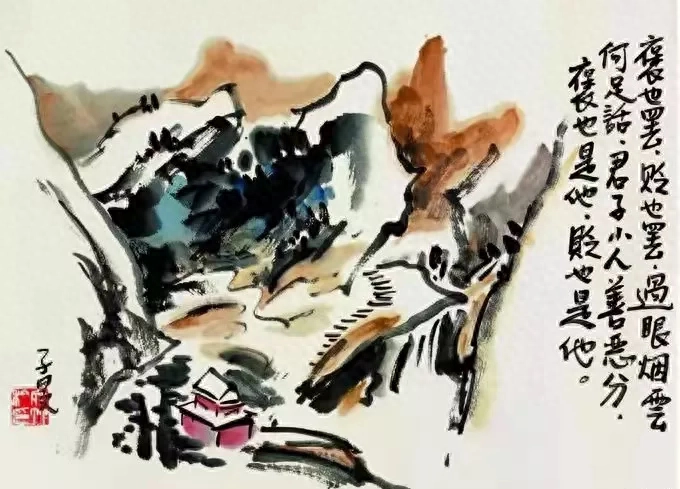 褒也罢，贬也罢，過眼烟雲
何足話，君子小人善恶分，
褒也是他，貶也是他。
子昃